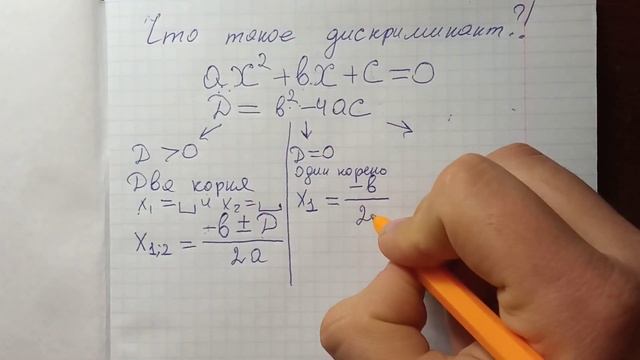 Что такое дискриминант?!
ax² + bx + c = 0
D = b² - 4ac
D > 0
Два корня
x₁ = ⎵ и x₂ = ⎵
x₁;₂ = (-b ± D) / 2a
D = 0
один корень
x₁ = -b / 2a